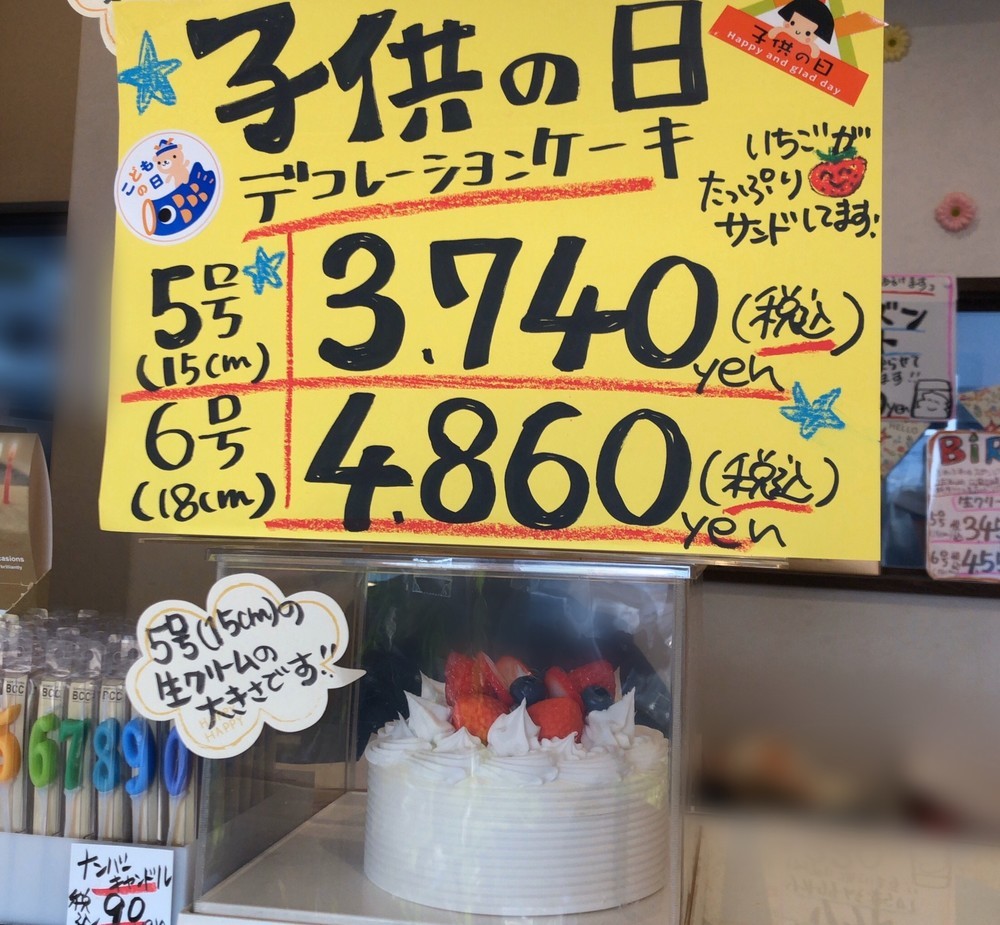 子供の日
デコレーションケーキ
子供の日
Happy and glad day
こども
の日
いちごが
たっぷり
サンドしてます!
5号
(15cm)
3.740
(税込)
yen
6号
(18cm)
4.860
(税込)
yen
5号(15cm)の
生クリームの
大きさです!!
HAPPY
BCC
BCC
BCC
6
7
8
9
0
ナンバー
キャンドル
税込
90
HELLO
生クリー
5号
6号